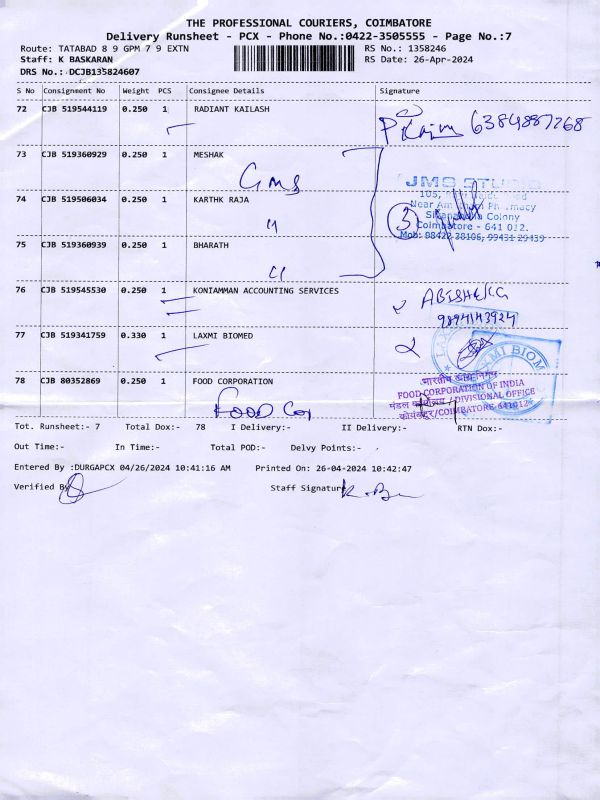 THE PROFESSIONAL COURIERS, COIMBATORE
Delivery Runsheet - PCX - Phone No.:0422-3505555 - Page No.:7
Route: TATABAD 8 9 GPM 7 9 EXTN
RS No.: 1358246
Staff: K BASKARAN
RS Date: 26-Apr-2024
DRS No.: DCJB135824607
S No Consignment No Weight PCS Consignee Details Signature
72 CJB 519544119 0.250 1 RADIANT KAILASH
6384887268
73 CJB 519360929 0.250 1 MESHAK
GMS
JMS STUDIO
105,
Near
Colony
Coimbatore - 641 012.
Mob: 98422 38106, 99431 29439
3
74 CJB 519506034 0.250 1 KARTHK RAJA
"
75 CJB 519360939 0.250 1 BHARATH
"
76 CJB 519545530 0.250 1 KONIAMMAN ACCOUNTING SERVICES
ABISHEKG
9894143924
77 CJB 519341759 0.330 1 LAXMI BIOMED
78 CJB 80352869 0.250 1 FOOD CORPORATION
Food Cor
FOOD CORPORATION OF INDIA
मंडल कार्यालय / DIVISIONAL OFFICE
कोयंबत्तूर/COIMBATORE-641012
Tot. Runsheet:- 7 Total Dox:- 78 I Delivery:- II Delivery:- RTN Dox:-
Out Time:- In Time:- Total POD:- Delvy Points:-
Entered By :DURGAPCX 04/26/2024 10:41:16 AM Printed On: 26-04-2024 10:42:47
Verified By
Staff Signature